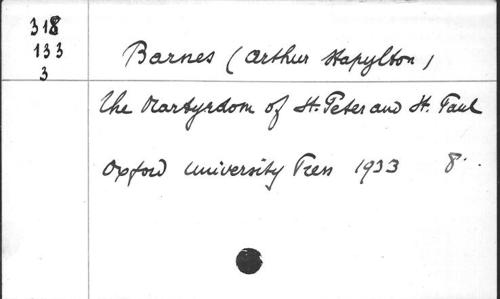 318
133
3
Barnes (Arthur Stapylton)
The Martyrdom of St. Peter and St. Paul
Oxford University Press 1933 8°.